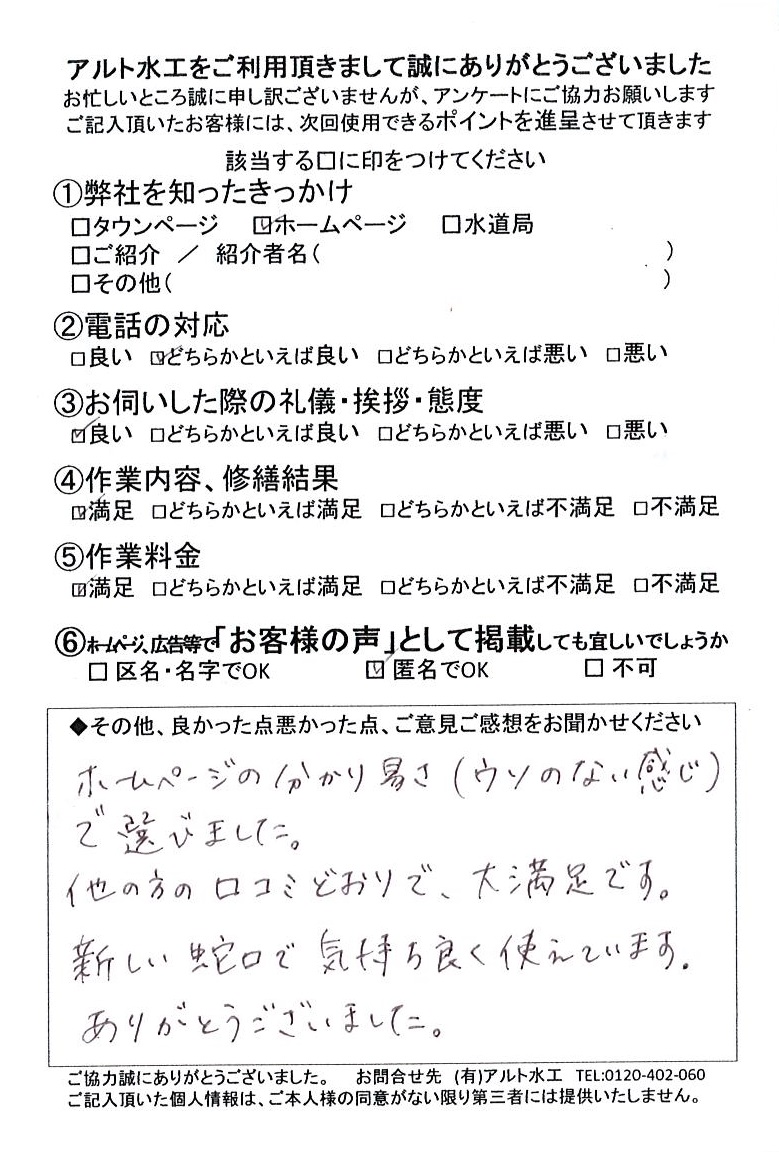 アルト水工をご利用頂きまして誠にありがとうございました
お忙しいところ誠に申し訳ございませんが、アンケートにご協力お願いします
ご記入頂いたお客様には、次回使用できるポイントを進呈させて頂きます
該当する□に印をつけてください
①弊社を知ったきっかけ
□タウンページ ☑ホームページ □水道局
□ご紹介 ／ 紹介者名( )
□その他( )
②電話の対応
□良い ☑どちらかといえば良い □どちらかといえば悪い □悪い
③お伺いした際の礼儀・挨拶・態度
☑良い □どちらかといえば良い □どちらかといえば悪い □悪い
④作業内容、修繕結果
☑満足 □どちらかといえば満足 □どちらかといえば不満足 □不満足
⑤作業料金
☑満足 □どちらかといえば満足 □どちらかといえば不満足 □不満足
⑥ホームページ、広告等で「お客様の声」として掲載しても宜しいでしょうか
□ 区名・名字でOK ☑ 匿名でOK □ 不可
◆その他、良かった点悪かった点、ご意見ご感想をお聞かせください
ホームページの分かり易さ(ウソのない感じ)
で選びました。
他の方の口コミどおりで、大満足です。
新しい蛇口で気持ち良く使えています。
ありがとうございました。
ご協力誠にありがとうございました。 お問合せ先 (有)アルト水工 TEL:0120-402-060
ご記入頂いた個人情報は、ご本人様の同意がない限り第三者には提供いたしません。